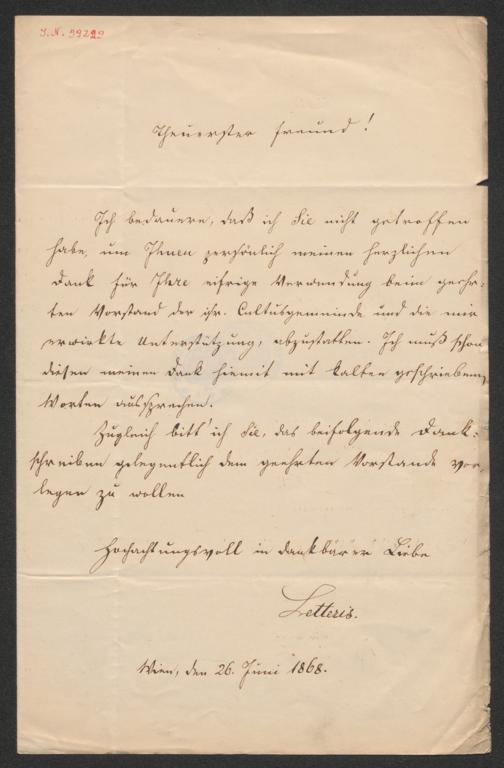 J. N. 99299
Theuerster Freund!
Ich bedauere, daß ich Sie nicht getroffen
habe, um Ihnen persönlich meinen herzlichen
Dank für Ihre eifrige Verwendung beim geehr-
ten Vorstand der isr. Cultusgemeinde und die mir
erwirkte Unterstützung, abzustatten. Ich muß schon
diesen meinen Dank hiemit mit kalten geschriebenen
Worten aussprechen.
Zugleich bitt' ich Sie, das beifolgende Dank-
schreiben gelegentlich dem geehrten Vorstande vor-
legen zu wollen
Hochachtungsvoll in dankbarer Liebe
Letteris.
Wien, den 26. Juni 1868.